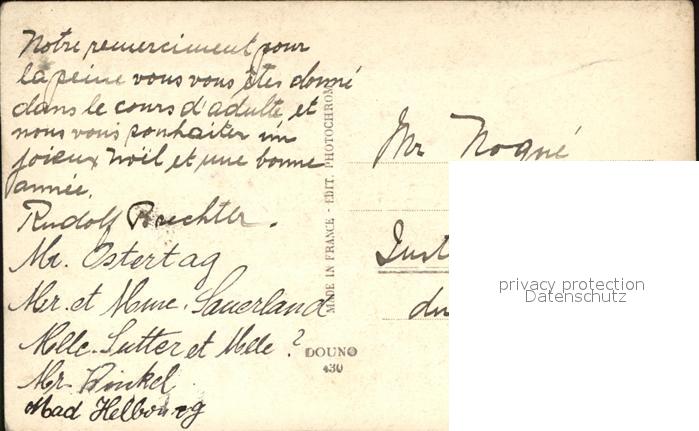 Notre remerciment pour
la peine vous vous êtes donné
dans le cours d'adulte et
nous vous souhaiter un
joieux Noël et une bonne
année.
Rudolf Brechter.
Mr. Ostertag
Mr. et Mme. Sauerland
Melle. Sutter et Melle ?
Mr. Winkel
Mad Helbourg
MADE IN FRANCE - EDIT. PHOTOCHROM
DOUNO
430
Mr Nogué
Inst
du
privacy protection
Datenschutz